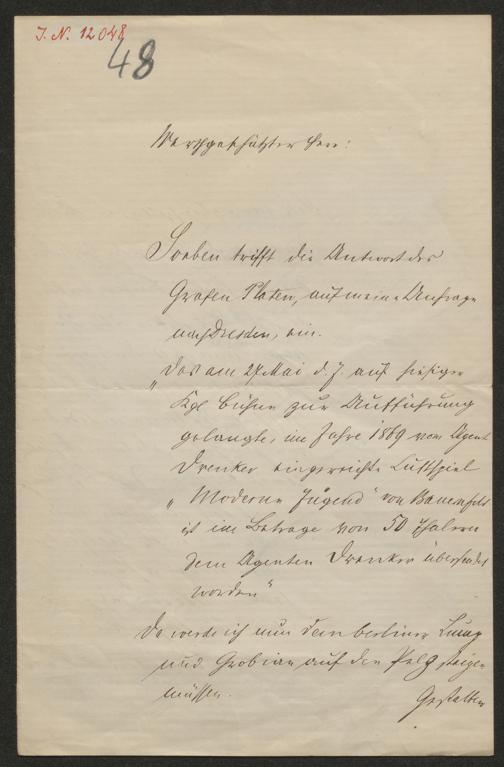 J. N. 12048
48
Werthgeschätzter Herr!
Soeben trifft die Antwort des
Grafen Platen, auf meine Anfrage
nach Dresden, ein.
„Das am 27 Mai d. J. auf hiesiger
Kgl Bühne zur Aufführung
gelangte, im Jahre 1869 vom Agent
Drenker eingereichte Lustspiel
„Moderne Jugend" von Bauernfeld
ist im Betrage von 50 Thalern
dem Agenten Drenker übersendet
worden"
Da werde ich nun dem berliner
und Grobian auf den Pelz steigen
müssen.
Gestatten